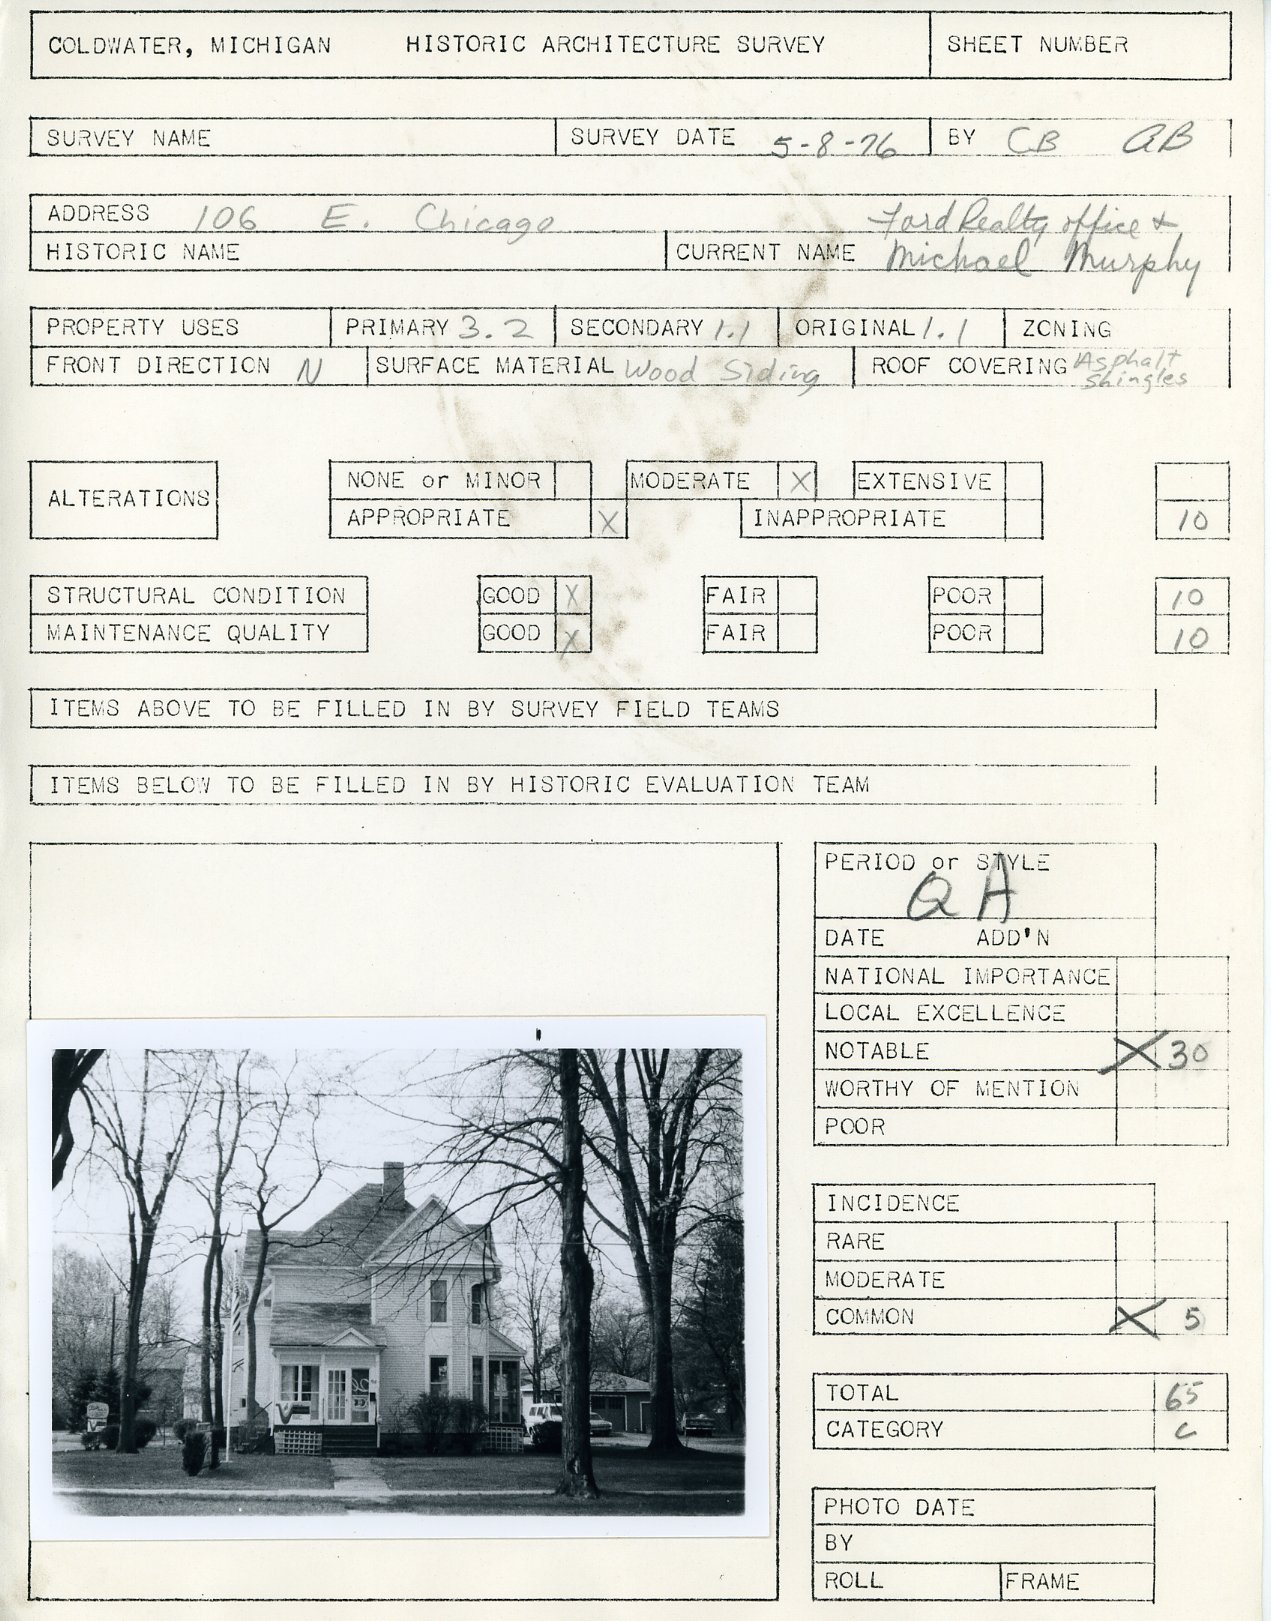 COLDWATER, MICHIGAN HISTORIC ARCHITECTURE SURVEY SHEET NUMBER
SURVEY NAME SURVEY DATE 5-8-76 BY CB AB
ADDRESS 106 E. Chicago
HISTORIC NAME CURRENT NAME Ford Realty office &
Michael Murphy
PROPERTY USES PRIMARY 3.2 SECONDARY 1.1 ORIGINAL 1.1 ZONING
FRONT DIRECTION N SURFACE MATERIAL Wood Siding ROOF COVERING Asphalt
Shingles
ALTERATIONS NONE or MINOR MODERATE X EXTENSIVE
APPROPRIATE X INAPPROPRIATE 10
STRUCTURAL CONDITION GOOD X FAIR POOR 10
MAINTENANCE QUALITY GOOD X FAIR POOR 10
ITEMS ABOVE TO BE FILLED IN BY SURVEY FIELD TEAMS
ITEMS BELOW TO BE FILLED IN BY HISTORIC EVALUATION TEAM
PERIOD or STYLE
QA
DATE ADD'N
NATIONAL IMPORTANCE
LOCAL EXCELLENCE
NOTABLE X 30
WORTHY OF MENTION
POOR
INCIDENCE
RARE
MODERATE
COMMON X 5
TOTAL 65
CATEGORY C
PHOTO DATE
BY
ROLL FRAME